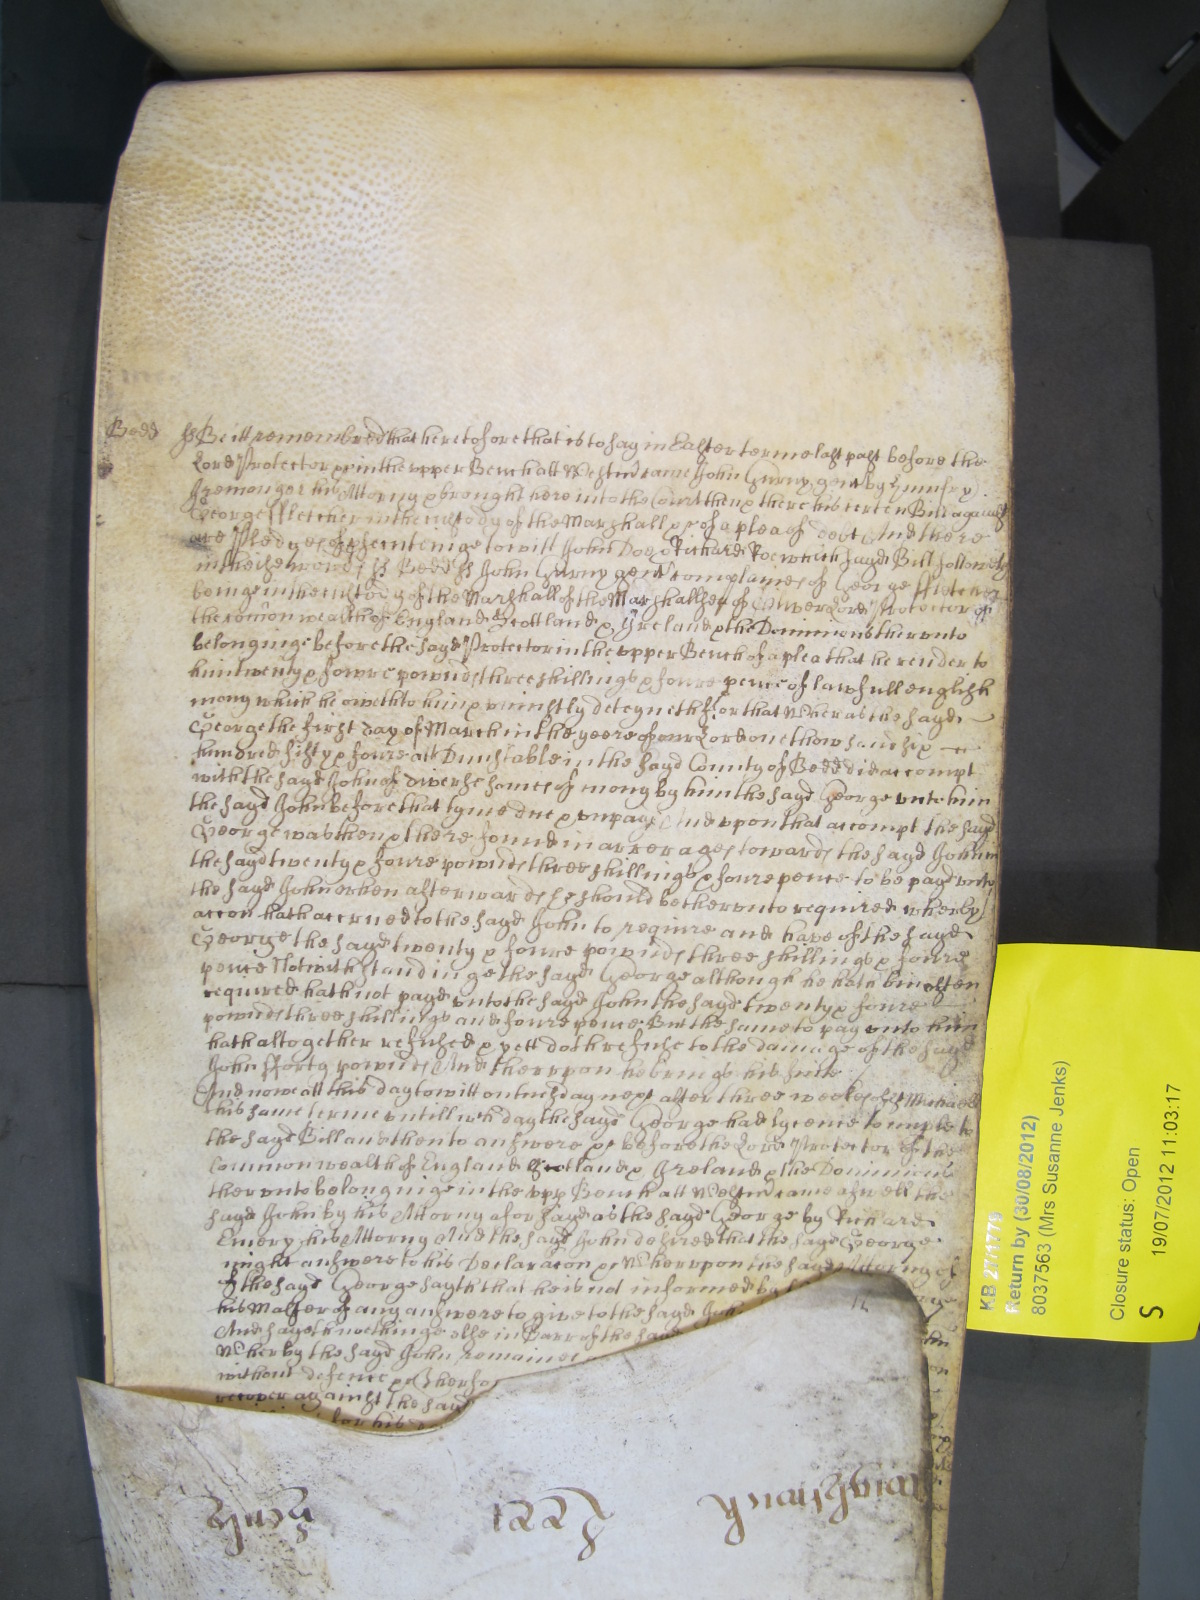 Bedd ss Be itt remembred that heretofore that is to say in Easter terme last past before the
Lord Protector &c in the upper Bench att Westmr came John Gurny gent by Humfry
Iremonger his Attorny & brought here into the Court then & there his certen Bill against
George Fletcher in the custody of the Marshall &c of a plea of debt And there
are Pledges of prosecutinge to witt John Doe & Richard Roe which sayd Bill followeth
in theise words ss Bedd ss John Gurny gent complaines of George Fletcher
beinge in the custody of the Marshall of the Marshallsea of Oliver Lord Protector of
the Comon wealth of England Scottland & Ireland & the Dominions therunto
belonginge before the sayd Protector in the upper Bench of a plea that he render to
him twenty & fowre pownds three shillings & foure pence of lawfull english
mony which he oweth to him & uniustly deteyneth For that Wheras the sayd
George the first day of March in the yeere of our Lord one thowsand six
hundred fifty & foure att Dunstable in the sayd County of Bedd did accompt
with the sayd John of diverse somes of mony by him the sayd George unto him
the sayd John before that tyme due & unpayd And upon that accompt the sayd
George was then & there found in arrerages towards the sayd John in
the sayd twenty & foure pownds three shillings & foure pence to be payd unto
the sayd John when afterwards he should be therunto required wherby
accon hath accrued to the sayd John to require and have of the sayd
George the sayd twenty & foure pownds three shillings & foure
pence Notwithstandinge the sayd George although he hath bin often
required hath not payd unto the sayd John the sayd twenty & foure
pownds three shillings and foure pence But the same to pay unto him
hath altogether refused & yett doth refuse to the damage of the sayd
John Forty pownds And therupon he brings his suite
And now att this day to witt on tuesday next after three weekes of St Michaell
this same terme untill wch day the sayd George had lycence to imparle to
the sayd Bill and then to answere &c before the Lord Protector of the
Common wealth of England Scotland & Ireland & the Dominions
therunto belonginge in the upp Bench att Westmr came aswell the
sayd John by his Attorny aforsayd as the sayd George by Richard
Emery his Attorny And the sayd John desired that the sayd George
might answere to his Declaracon &c Wherupon the sayd Attorny of
the sayd George sayth that he is not informed by
his Master of any answere to give to the sayd John
And sayeth nothinge else in Barr of the sayd
Wherby the sayd John remaines
without defence &c Therfore
recover against the sayd
for his
KB 27/1779
Return by (30/08/2012)
8037563 (Mrs Susanne Jenks)
Closure status: Open
S 19/07/2012 11:03:17